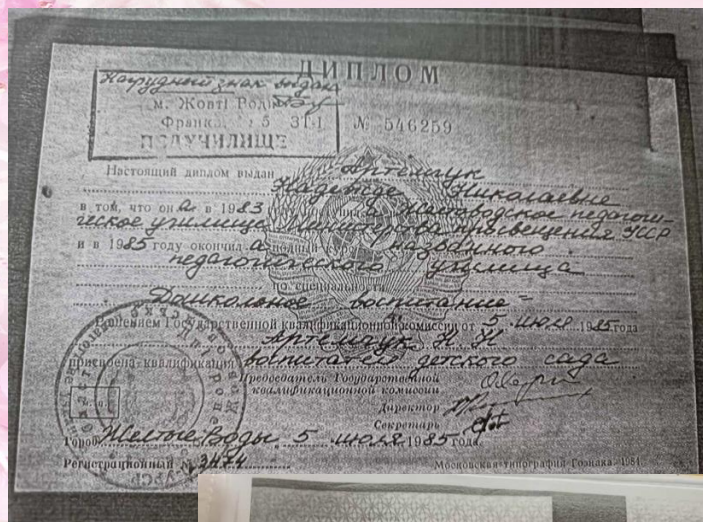 ДИПЛОМ
Нагрудный знак выдан
м. Жовті
Франка, 5
ПЕДУЧИЛИЩЕ
№ 546259
Настоящий диплом выдан Артемчук
Надежде Николаевне
в том, что он а в 1983 Желтоводское педагоги-
ческое училище Министерства просвещения УССР
и в 1985 году окончил а полный курс названного
педагогического училища
по специальности
„Дошкольное воспитание"
Решением Государственной квалификационной комиссии от 5 июля 1985 года
Артемчук Н. Н.
присвоена квалификация воспитатель детского сада
Председатель Государственной
квалификационной комиссии
Директор
Секретарь
Город Желтые Воды 5 июля 1985 года.
Регистрационный № 3474
Московская типография Гознака. 1984.